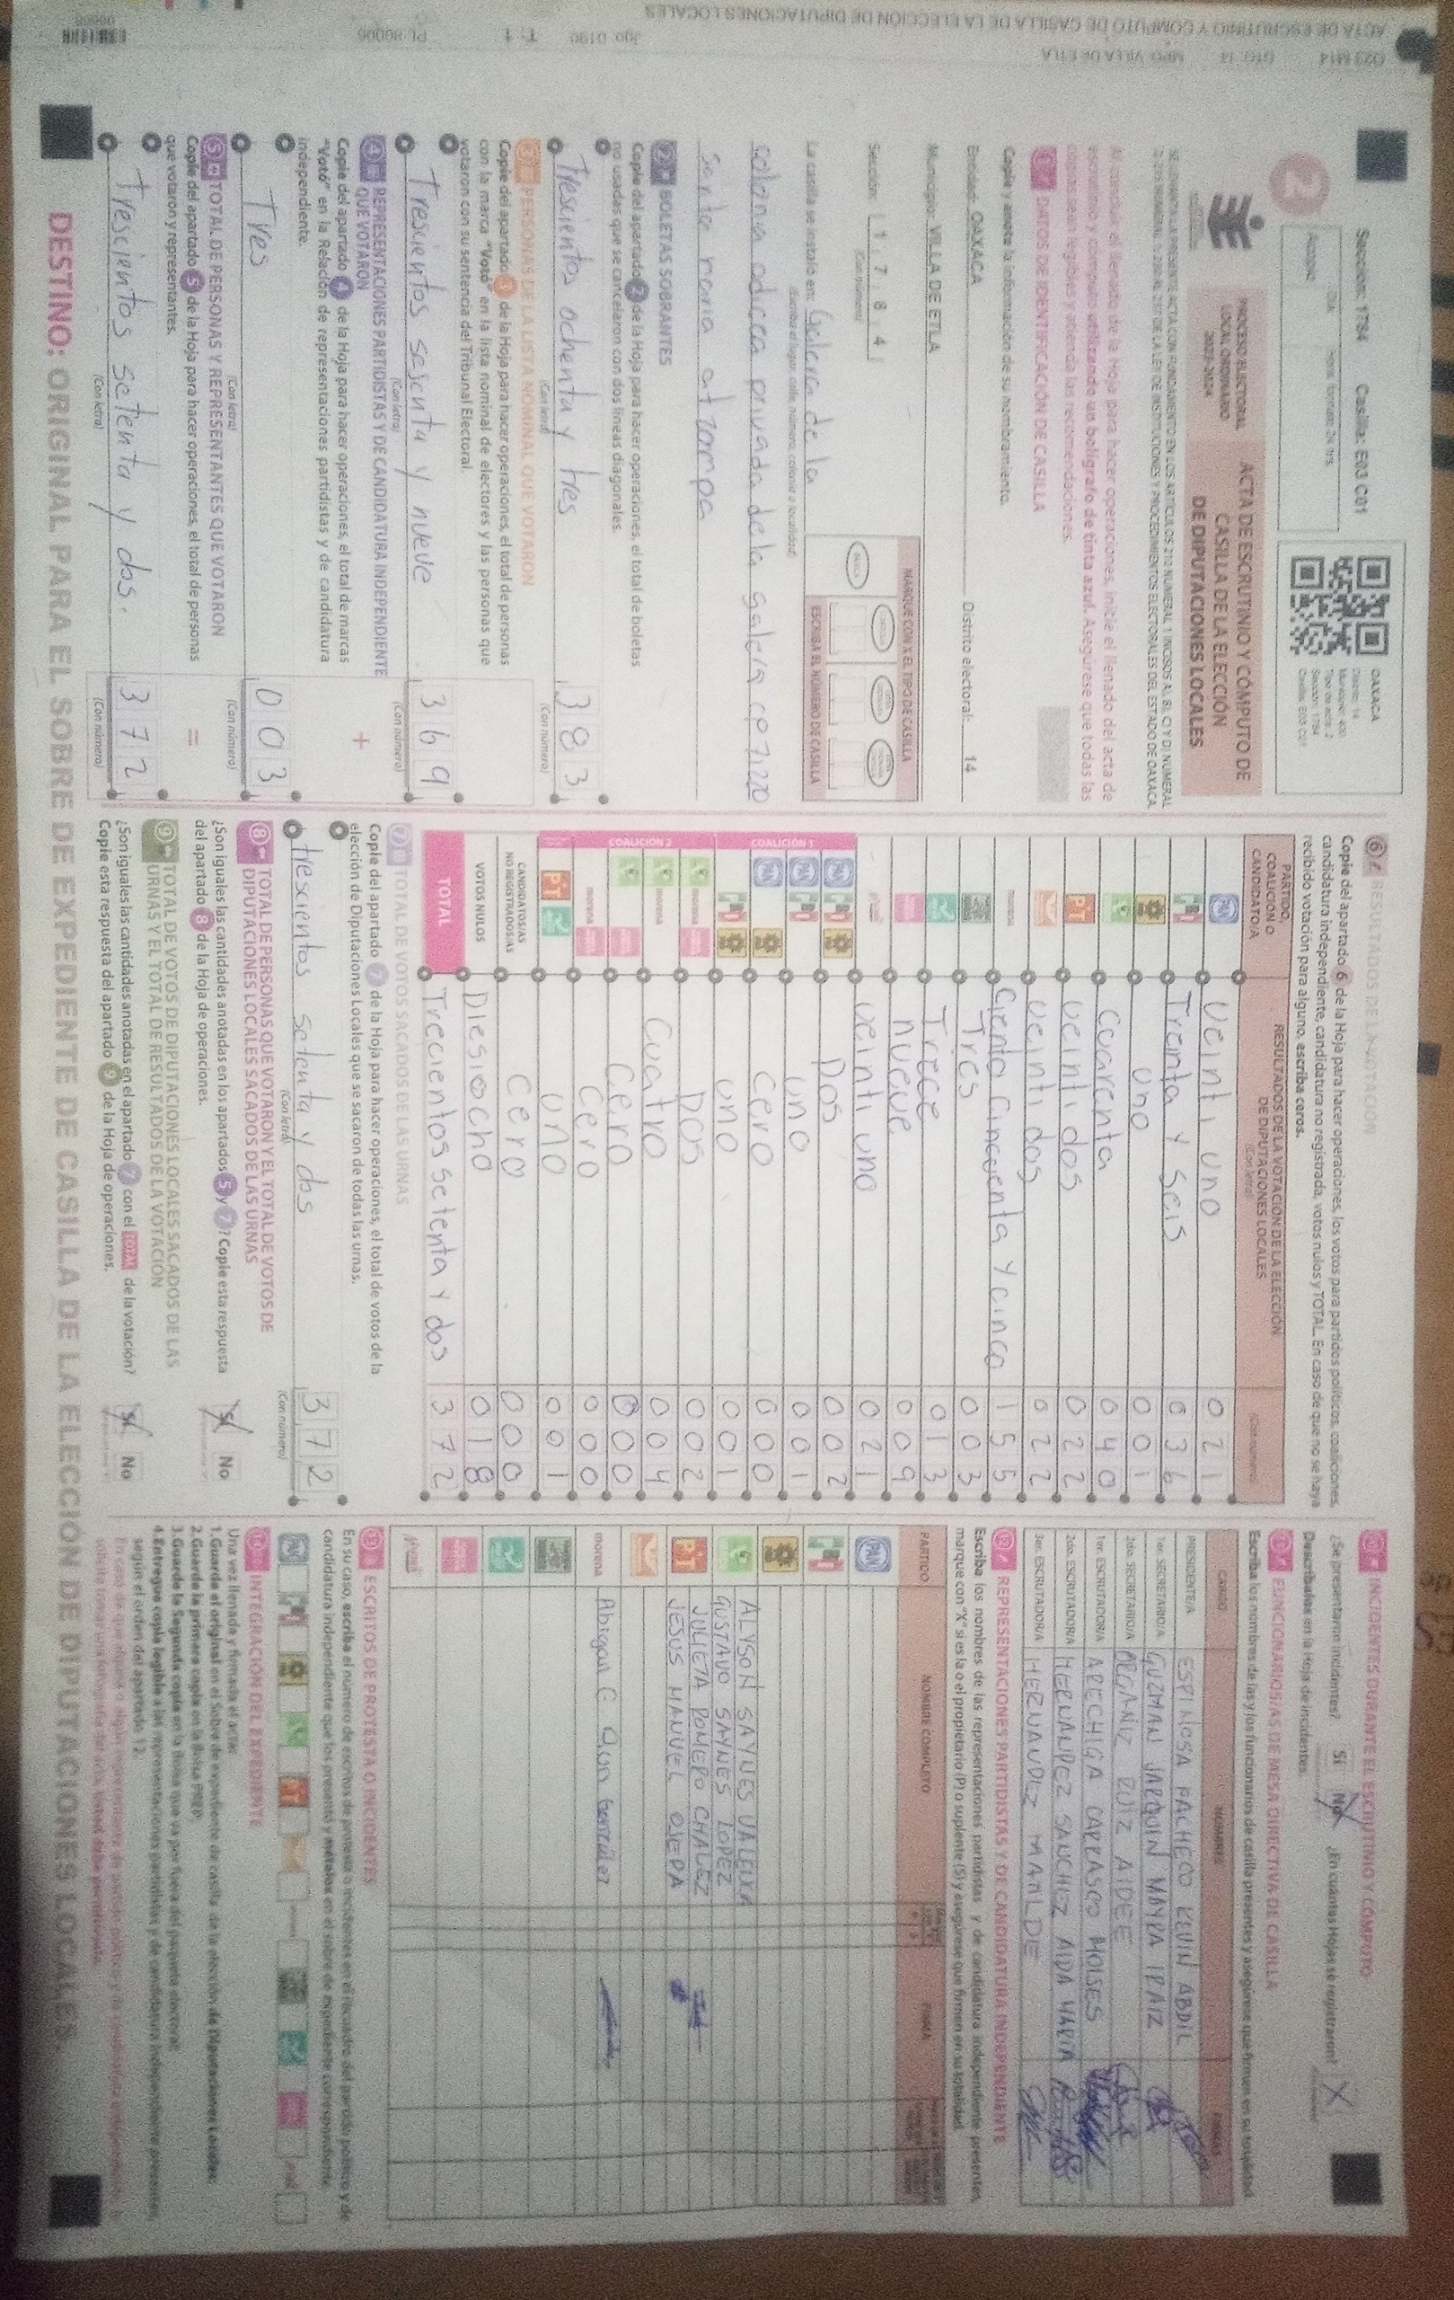 Sección: 1784 Casilla: E03 C01
OAXACA
Distrito: 14
Tipo de acta: 2
Sección: 1784
Casilla: E03 C01
2
Acuse
PROCESO ELECTORAL
LOCAL ORDINARIO
2023-2024
ACTA DE ESCRUTINIO Y CÓMPUTO DE
CASILLA DE LA ELECCIÓN
DE DIPUTACIONES LOCALES
Al concluir el llenado de la Hoja para hacer operaciones, inicie el llenado del acta de
escrutinio y cómputo utilizando un bolígrafo de tinta azul. Asegúrese que todas las
copias sean legibles y atienda las recomendaciones.
1 DATOS DE IDENTIFICACIÓN DE CASILLA
Copie y anote la información de su nombramiento.
Entidad: OAXACA Distrito electoral: 14
Municipio: VILLA DE ETLA
Sección: 1 7 8 4
(Con número)
MARQUE CON X EL TIPO DE CASILLA
ESCRIBA EL NÚMERO DE CASILLA
La casilla se instaló en: Galera de la
(Escriba el lugar, calle, número, colonia o localidad)
2 BOLETAS SOBRANTES
Copie del apartado 2 de la Hoja para hacer operaciones, el total de boletas
no usadas que se cancelaron con dos líneas diagonales.
Trescientos ochenta y tres 383
(Con letra) (Con número)
3 PERSONAS DE LA LISTA NOMINAL QUE VOTARON
Copie del apartado 3 de la Hoja para hacer operaciones, el total de personas
con la marca "Votó" en la lista nominal de electores y las personas que
votaron con su sentencia del Tribunal Electoral.
Trescientos sesenta y nueve 369
(Con letra) (Con número)
4 REPRESENTACIONES PARTIDISTAS Y DE CANDIDATURA INDEPENDIENTE
QUE VOTARON
Copie del apartado 4 de la Hoja para hacer operaciones, el total de marcas
"Votó" en la Relación de representaciones partidistas y de candidatura
independiente.
+
Tres 003
(Con letra) (Con número)
5 TOTAL DE PERSONAS Y REPRESENTANTES QUE VOTARON
Copie del apartado 5 de la Hoja para hacer operaciones, el total de personas
que votaron y representantes.
=
Trescientos setenta y dos. 372
(Con letra) (Con número)
6 RESULTADOS DE LA VOTACIÓN
Copie del apartado 6 de la Hoja para hacer operaciones, los votos para partidos políticos, coaliciones,
candidatura independiente, candidatura no registrada, votos nulos y TOTAL. En caso de que no se haya
recibido votación para alguno, escriba ceros.
PARTIDO,
COALICIÓN O
CANDIDATO/A
RESULTADOS DE LA VOTACIÓN DE LA ELECCIÓN
DE DIPUTACIONES LOCALES
(Con letra)
PAN Veinti uno 021
PRI Treinta y Seis 036
uno 001
cuarenta 040
PT veinti dos 022
veinti dos 022
morena Ciento Cincuenta y cinco 155
Tres 003
Trece 013
nueve 009
veinti uno 021
COALICIÓN 1
PAN PRI Dos 002
PAN PRI uno 001
PAN cero 000
PRI uno 001
COALICIÓN 2
morena Dos 002
morena Cuatro 004
Cero 000
morena Cero 000
PT uno 001
CANDIDATOS/AS
NO REGISTRADOS/AS Cero 000
VOTOS NULOS Diesiocho 018
TOTAL Trecientos setenta y dos 372
7 TOTAL DE VOTOS SACADOS DE LAS URNAS
Copie del apartado 7 de la Hoja para hacer operaciones, el total de votos de la
elección de Diputaciones Locales que se sacaron de todas las urnas.
trescientos setenta y dos 372
(Con letra) (Con número)
8 TOTAL DE PERSONAS QUE VOTARON Y EL TOTAL DE VOTOS DE
DIPUTACIONES LOCALES SACADOS DE LAS URNAS
¿Son iguales las cantidades anotadas en los apartados 5 y 7? Copie esta respuesta
del apartado 8 de la Hoja de operaciones.
Sí No
9 TOTAL DE VOTOS DE DIPUTACIONES LOCALES SACADOS DE LAS
URNAS Y EL TOTAL DE RESULTADOS DE LA VOTACIÓN
¿Son iguales las cantidades anotadas en el apartado 7 con el TOTAL de la votación?
Copie esta respuesta del apartado 9 de la Hoja de operaciones.
Sí No
10 INCIDENTES DURANTE EL ESCRUTINIO Y CÓMPUTO
¿Se presentaron incidentes? Sí No ¿En cuántas Hojas se registraron? X
Descríbalos en la Hoja de incidentes.
11 FUNCIONARIOS/AS DE MESA DIRECTIVA DE CASILLA
Escriba los nombres de las y los funcionarios de casilla presentes y asegúrese que firmen en su totalidad
CARGO NOMBRES FIRMAS
PRESIDENTE/A ESPINOSA PACHECO KEVIN ABDIL
1er. SECRETARIO/A GUZMAN JARQUIN MAYRA IRAIZ
2do. SECRETARIO/A RUIZ AIDEE
1er. ESCRUTADOR/A ARECHIGA CARRASCO MOISES
2do. ESCRUTADOR/A HERNANDEZ SANCHEZ AIDA MARIA
3er. ESCRUTADOR/A HERNANDEZ MATILDE
12 REPRESENTACIONES PARTIDISTAS Y DE CANDIDATURA INDEPENDIENTE
Escriba los nombres de las representaciones partidistas y de candidatura independiente presentes,
marque con "X" si es la o el propietario (P) o suplente (S) y asegúrese que firmen en su totalidad.
PARTIDO NOMBRE COMPLETO FIRMA
PAN
PRI
ALYSON SAYNES
GUSTAVO SAYNES LOPEZ
PT JULIETA ROMERO CHAVEZ
JESUS MANUEL
morena
13 ESCRITOS DE PROTESTA O INCIDENTES
En su caso, escriba el número de escritos de protesta o incidentes en el recuadro del partido político y de
candidatura independiente que los presentó y métalos en el sobre de expediente correspondiente.
INTEGRACIÓN DEL EXPEDIENTE
Una vez llenada y firmada el acta:
1. Guarde el original en el Sobre de expediente de casilla de la elección de Diputaciones Locales;
2. Guarde la primera copia en la Bolsa PREP;
3. Guarde la Segunda copia en la Bolsa que va por fuera del paquete electoral;
4. Entregue copia legible a las representaciones partidistas y de candidatura independiente presentes,
según el orden del apartado 12.
DESTINO: ORIGINAL PARA EL SOBRE DE EXPEDIENTE DE CASILLA DE LA ELECCIÓN DE DIPUTACIONES LOCALES.
ACTA DE ESCRUTINIO Y CÓMPUTO DE CASILLA DE LA ELECCIÓN DE DIPUTACIONES LOCALES